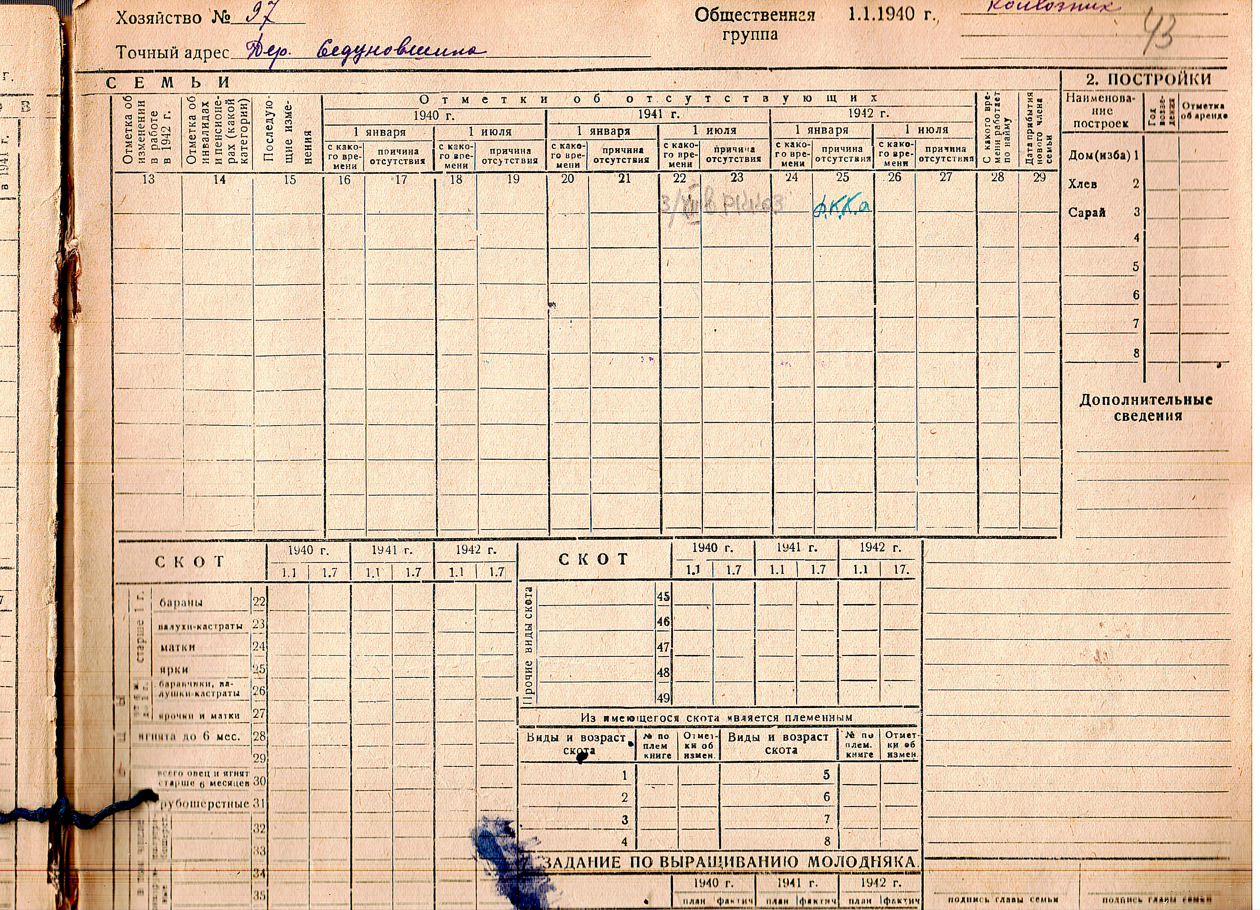 Хозяйство № 97
Точный адрес Дер. Седуновщина
Общественная группа 1.1.1940 г., колхозник
43
СЕМЬИ
Отметка об изменении в работе в 1942 г.
Отметка об инвалидах и пенсионерах (какой категории)
Последующие изменения
Отметки об отсутствующих
1940 г. 1941 г. 1942 г.
1 января 1 июля 1 января 1 июля 1 января 1 июля
с какого времени причина отсутствия с какого времени причина отсутствия с какого времени причина отсутствия с какого времени причина отсутствия с какого времени причина отсутствия с какого времени причина отсутствия
С какого времени работает по найму
Дата прибытия нового члена семьи
13 14 15 16 17 18 19 20 21 22 23 24 25 26 27 28 29
Р.К.К.а
2. ПОСТРОЙКИ
Наименование построек
Отметка об аренде
Дом(изба) 1
Хлев 2
Сарай 3
4
5
6
7
8
Дополнительные сведения
СКОТ 1940 г. 1941 г. 1942 г.
1.1 1.7 1.1 1.7 1.1 1.7
старше 1 г.
бараны 22
валухи-кастраты 23
матки 24
ярки 25
баранчики, валушки-кастраты 26
ярочки и матки 27
ягнята до 6 мес. 28
29
всего овец и ягнят старше 6 месяцев 30
грубошерстные 31
32
33
34
35
СКОТ 1940 г. 1941 г. 1942 г.
1.1 1.7 1.1 1.7 1.1 17.
Прочие виды скота
45
46
47
48
49
Из имеющегося скота является племенным
Виды и возраст скота № по плем книге Отметки об измен. Виды и возраст скота № по плем. книге Отметки об измен.
1 5
2 6
3 7
4 8
ЗАДАНИЕ ПО ВЫРАЩИВАНИЮ МОЛОДНЯКА.
1940 г. 1941 г. 1942 г.
план фактич план фактич план фактич
подпись главы семьи подпись главы семьи